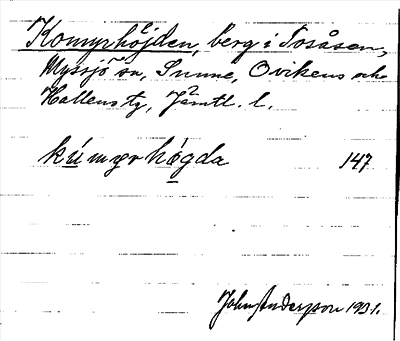 Komyrhöjden, berg i Tosåsen,
Myssjö sn, Sunne, Ovikens och
Hallens tg, Jämtl. l.
kúmyrhǫ́gda 147
John Andersson 1931.